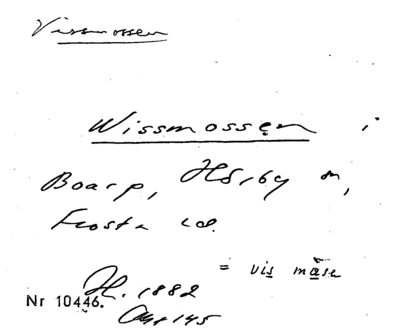 Vissmossen
Wissmossen i
Boarp, Hörby sn,
Frosta hd.
= vis måse
H. 1882
Nr 10446.
145